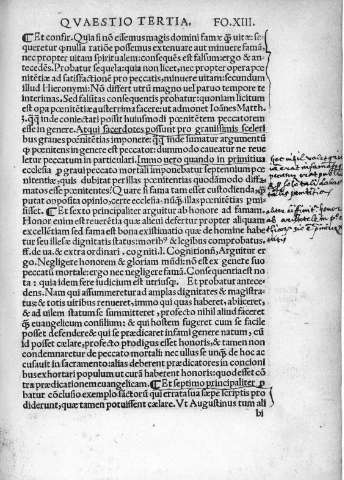 QVAESTIO TERTIA. FO.XIII.
¶Et confir. Quia si nõ essemus magis domini famæ ꝗ̃ uitæ se-
queretur ꝙ nulla ratiõe possemus extenuare aut minuere famã,
nec propter uitam spiritualem: consequẽs est falsum ergo & an-
tecedẽs. Probatur sequela: quia non licet, nec propter opera pœ-
nitẽtiæ ad satisfactionẽ pro peccatis, minuere uitam: secundum
illud Hieronymi: Nõ differt utrũ magno uel paruo tempore te
interimas. Sed falsitas consequentis probatur: quoniam licitum
est opta pœnitẽtiæ austerrima facere: ut admonet Ioãnes Matth.
3. ꝗꝗ̃ inde coniectari possit huiusmodi pœnitẽtem peccatorem
esse in genere. Atqui sacerdotes possunt pro grauissimis sceleri
bus graues pœnitẽtias imponere: ꝗꝗ̃ inde sumatur argumentũ
ꝙ pœnitens in genere est peccator: dummodo caueatur ne reue
letur peccatum in particulari. Immo uero quando in primitiua
ecclesia ꝓ graui peccato mortali imponebatur septennium pœ-
nitẽtiæ: quis dubitat per illas pœnitentias quodãmodo diffa-
matos esse pœnitentes? Quare si fama tam esset custodienda, ꝙ
putat opposita opinio, certe ecclesia nunꝗ̃ illas pœnitẽtias pmi-
sisset. ¶Et sexto principaliter arguitur ab honore ad famam.
Honor enim est reuerẽtia quæ alteri defertur propter aliquam
excellẽtiam sed fama est bona existimatio quã de homine habe
tur seu illesæ dignitatis status: morib⁹ & legibus comprobatus.
ff. de ua. & extra ordinari. cogniti. l. Cognitionũ. Arguitur er
go. Negligere honorem & gloriam mũdi: nõ est ex genere suo
peccatũ mortale: ergo nec negligere famã. Consequentia est no
ta: quia idem fere iudicium est utriusꝗ. Et probatur antece
dens. Nam qui assummeretur ad amplas dignitates & magistra-
tus: & totis uiribus renueret, immo qui quas haberet, abiiceret,
& ad uilem statum se summitteret, profecto nihil aliud faceret
ꝗ̃ euangelicum consilium: & qui hostem fugeret cum se facile
posset defendere & qui se prædicaret infami genere natum, cũ
id posset cælare, profecto prodigus esset honoris, & tamen non
condemnaretur de peccato mortali: nec ullus se unꝗ̃ de hoc ac
cusauit in sacramento: alias deberent prædicatores in concioni
bus exhortari populum ut curã haberent honoris: quod esset cõ
tra prædicationem euangelicam. ¶Et septimo principaliter ꝓ
batur cõclusio exemplo sãctorũ qui errata sua sæpe scriptis pro
diderunt, quæ tamen potuissent cælare. Vt Augustinus tum ali
bi